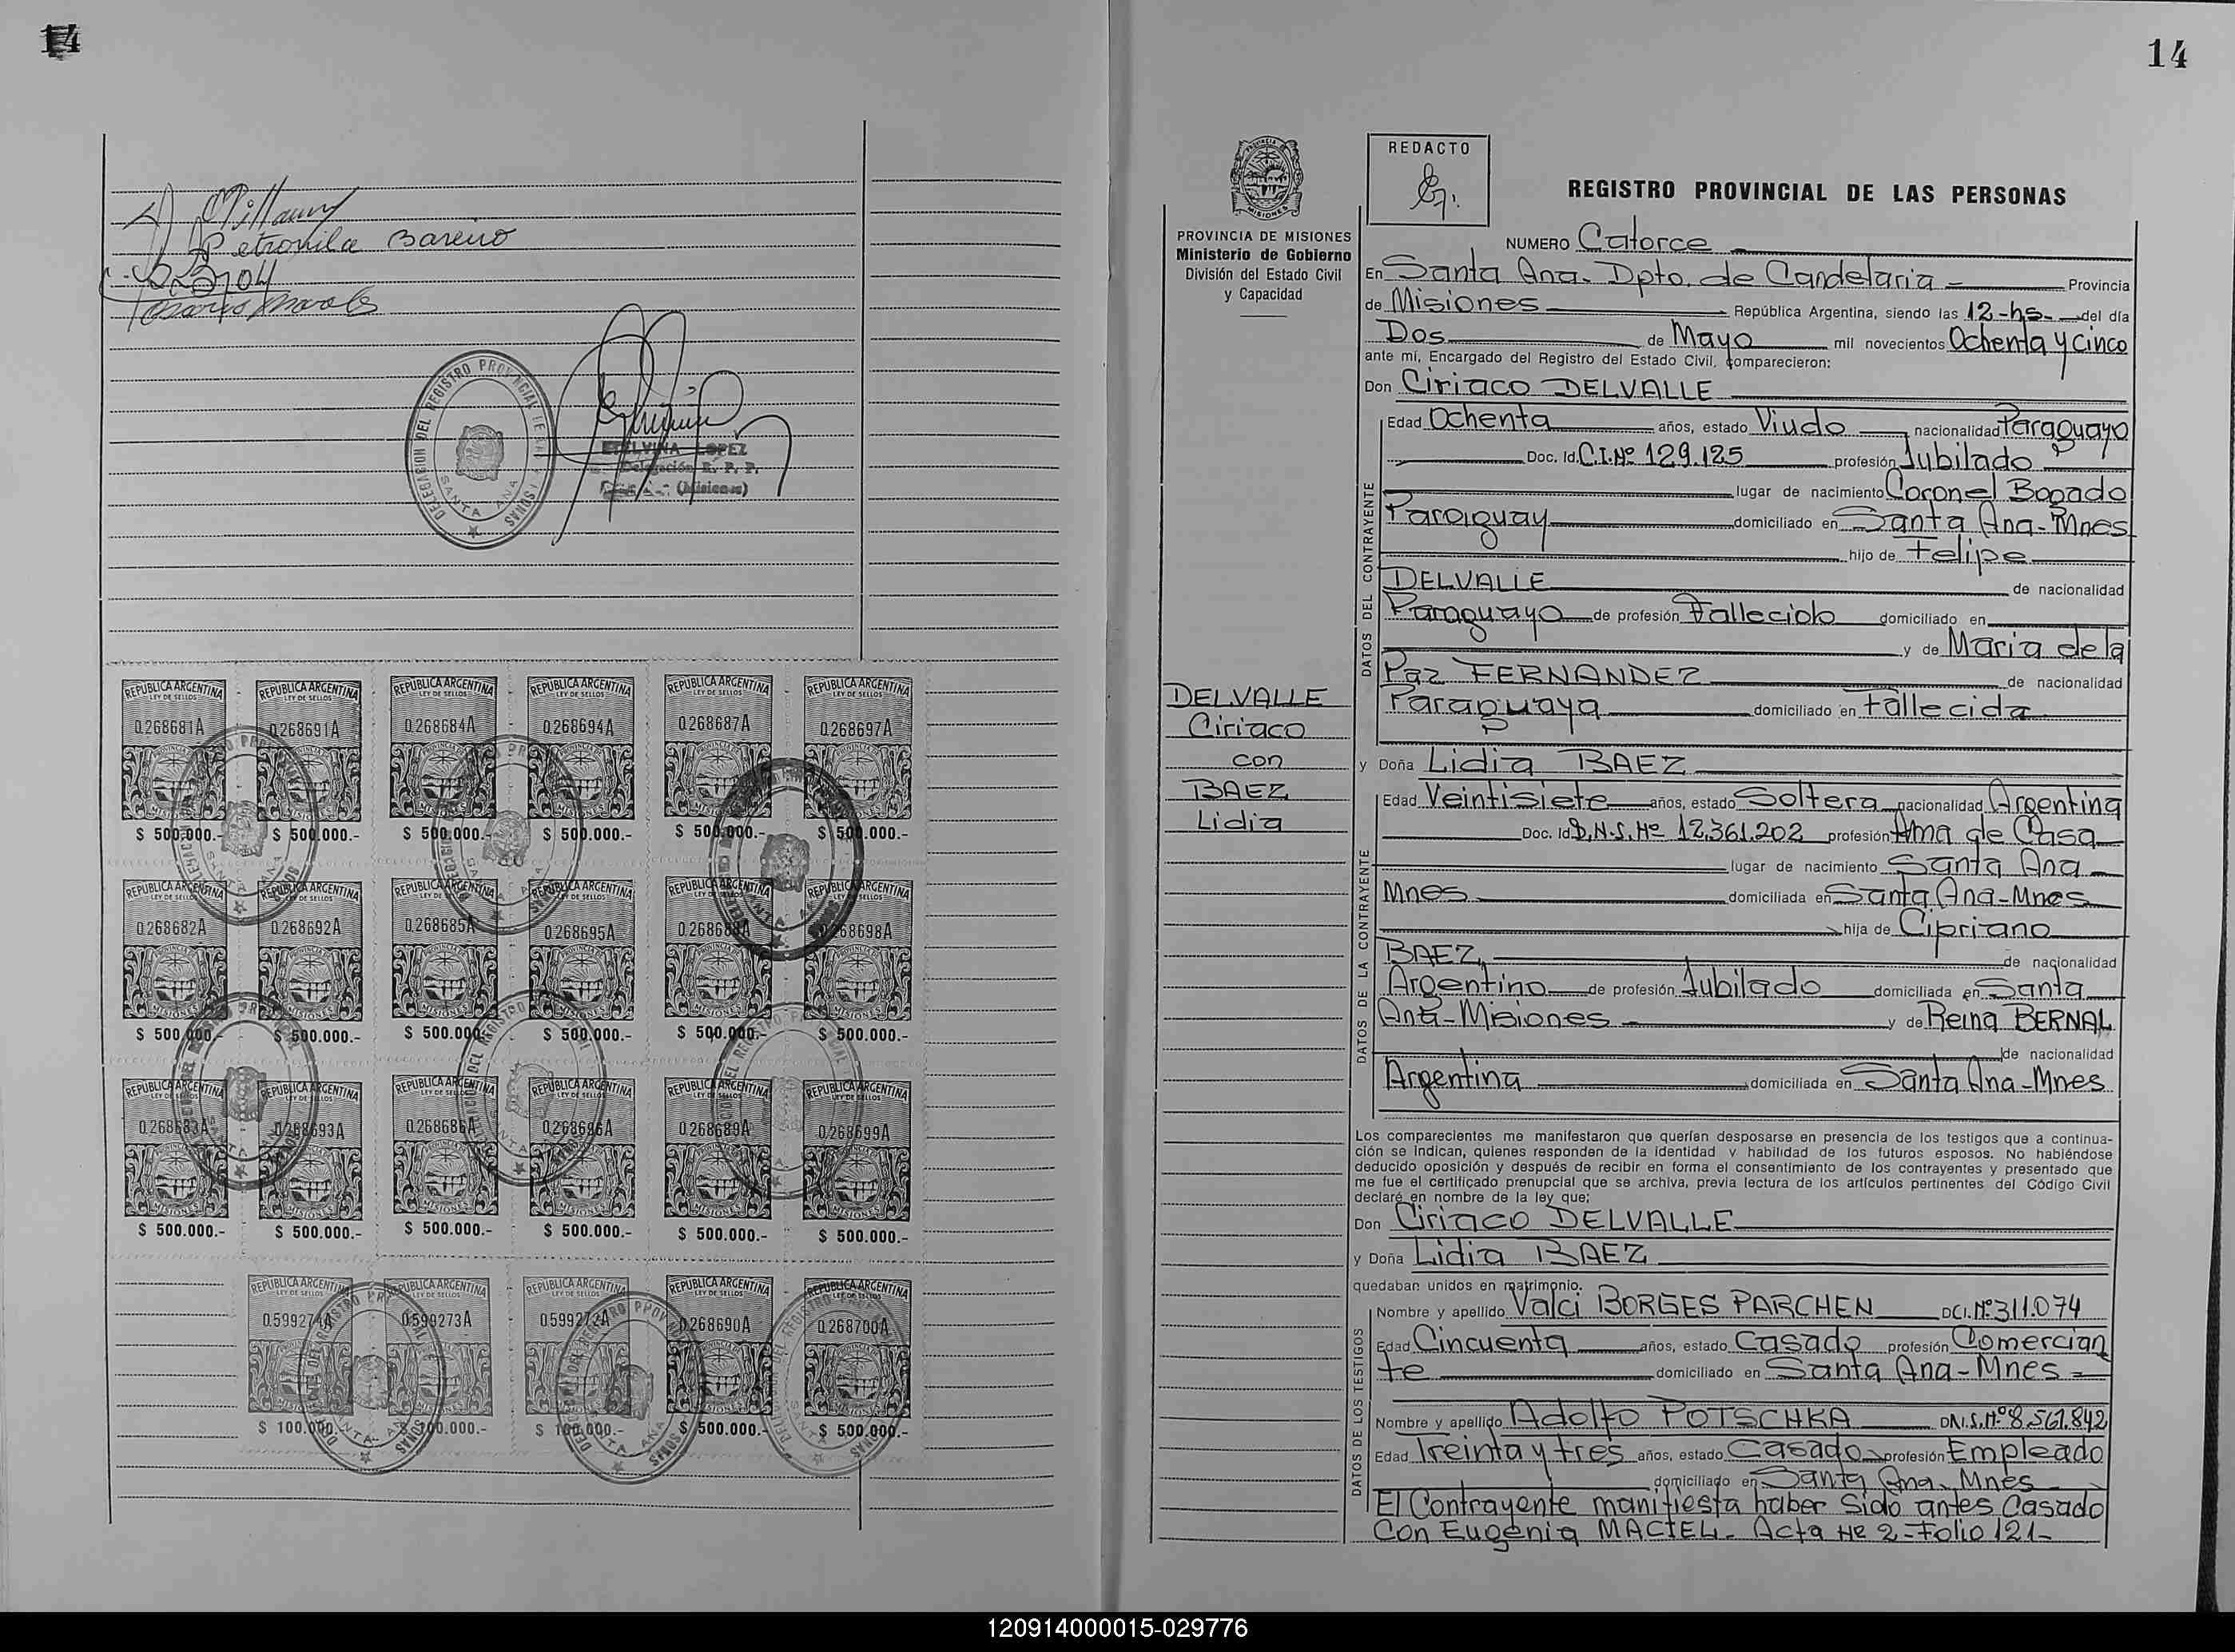 14
Petronila Bareiro
DELEGACION DEL REGISTRO PROVINCIAL DE LAS PERSONAS
SANTA ANA
LOPEZ
Delegación R. P. P.
(Misiones)
REPUBLICA ARGENTINA REPUBLICA ARGENTINA REPUBLICA ARGENTINA REPUBLICA ARGENTINA REPUBLICA ARGENTINA REPUBLICA ARGENTINA
LEY DE SELLOS LEY DE SELLOS LEY DE SELLOS LEY DE SELLOS LEY DE SELLOS LEY DE SELLOS
0.268681A 0.268691A 0.268684A 0.268694A 0.268687A 0.268697A
MISIONES MISIONES MISIONES MISIONES MISIONES MISIONES
$ 500.000.- $ 500.000.- $ 500.000.- $ 500.000.- $ 500.000.- $ 500.000.-
REPUBLICA ARGENTINA REPUBLICA ARGENTINA REPUBLICA ARGENTINA REPUBLICA ARGENTINA REPUBLICA ARGENTINA REPUBLICA ARGENTINA
LEY DE SELLOS LEY DE SELLOS LEY DE SELLOS LEY DE SELLOS LEY DE SELLOS LEY DE SELLOS
0.268682A 0.268692A 0.268685A 0.268695A 0.268688A 0.268698A
MISIONES MISIONES MISIONES MISIONES MISIONES MISIONES
$ 500.000.- $ 500.000.- $ 500.000.- $ 500.000.- $ 500.000.- $ 500.000.-
REPUBLICA ARGENTINA REPUBLICA ARGENTINA REPUBLICA ARGENTINA REPUBLICA ARGENTINA REPUBLICA ARGENTINA REPUBLICA ARGENTINA
LEY DE SELLOS LEY DE SELLOS LEY DE SELLOS LEY DE SELLOS LEY DE SELLOS LEY DE SELLOS
0.268683A 0.268693A 0.268686A 0.268696A 0.268689A 0.268699A
MISIONES MISIONES MISIONES MISIONES MISIONES MISIONES
$ 500.000.- $ 500.000.- $ 500.000.- $ 500.000.- $ 500.000.- $ 500.000.-
REPUBLICA ARGENTINA REPUBLICA ARGENTINA REPUBLICA ARGENTINA REPUBLICA ARGENTINA REPUBLICA ARGENTINA
LEY DE SELLOS LEY DE SELLOS LEY DE SELLOS LEY DE SELLOS LEY DE SELLOS
0.599274A 0.599273A 0.599272A 0.268690A 0.268700A
MISIONES MISIONES MISIONES MISIONES MISIONES
$ 100.000.- $ 100.000.- $ 100.000.- $ 500.000.- $ 500.000.-
14
PROVINCIA DE MISIONES
Ministerio de Gobierno
División del Estado Civil
y Capacidad
REDACTO
REGISTRO PROVINCIAL DE LAS PERSONAS
NUMERO Catorce
En Santa Ana. Dpto. de Candelaria - Provincia
de Misiones República Argentina, siendo las 12-hs- del día
Dos de Mayo mil novecientos Ochenta y cinco
ante mí, Encargado del Registro del Estado Civil, comparecieron:
Don Ciriaco DELVALLE
DATOS DEL CONTRAYENTE
Edad Ochenta años, estado Viudo nacionalidad Paraguayo
Doc. Id. C.I.Nº 129.125 profesión Jubilado
lugar de nacimiento Coronel Bogado
Paraguay domiciliado en Santa Ana-Mnes
hijo de Felipe
DELVALLE de nacionalidad
Paraguayo de profesión Fallecido domiciliado en
y de Maria de la
Paz FERNANDEZ de nacionalidad
Paraguaya domiciliado en Fallecida
DELVALLE
Ciriaco
con
BAEZ
Lidia
y Doña Lidia BAEZ
DATOS DE LA CONTRAYENTE
Edad Veintisiete años, estado Soltera nacionalidad Argentina
Doc. Id. D.N.I. Nº 12.361.202 profesión Ama de Casa
lugar de nacimiento Santa Ana
Mnes domiciliada en Santa Ana-Mnes
hija de Cipriano
BAEZ, de nacionalidad
Argentino de profesión Jubilado domiciliada en Santa
Ana-Misiones y de Reina BERNAL
de nacionalidad
Argentina domiciliada en Santa Ana-Mnes
Los comparecientes me manifestaron que querían desposarse en presencia de los testigos que a continua-
ción se indican, quienes responden de la identidad y habilidad de los futuros esposos. No habiéndose
deducido oposición y después de recibir en forma el consentimiento de los contrayentes y presentado que
me fue el certificado prenupcial que se archiva, previa lectura de los artículos pertinentes del Código Civil
declaré en nombre de la ley que;
Don Ciriaco DELVALLE
y Doña Lidia BAEZ
quedaban unidos en matrimonio.
DATOS DE LOS TESTIGOS
Nombre y apellido Valci BORGES PARCHEN DCI.Nº311.074
Edad Cincuenta años, estado Casado profesión Comercian
te domiciliado en Santa Ana-Mnes
Nombre y apellido Adolfo POTSCHKA D.N.I.Nº 8.561.842
Edad Treinta y tres años, estado Casado profesión Empleado
domiciliado en Santa Ana-Mnes
El Contrayente manifiesta haber Sido antes Casado
Con Eugenia MACIEL- Acta Nº 2-Folio 121-
120914000015-029776